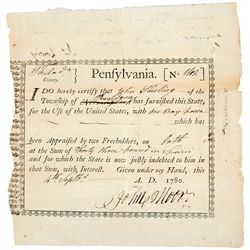 Philada Pensylvania. [No
County.
I DO hereby certify that John of the
Township of has furnished this State,
for the Use of the United States, with one Bay
which has
been Appraised by two Freeholders, on Oath
at the Sum of Thirty three pound in Specie
and for which the State is now justly indebted to him in
that Sum, with Interest. Given under my Hand, this
A. D. 1780.